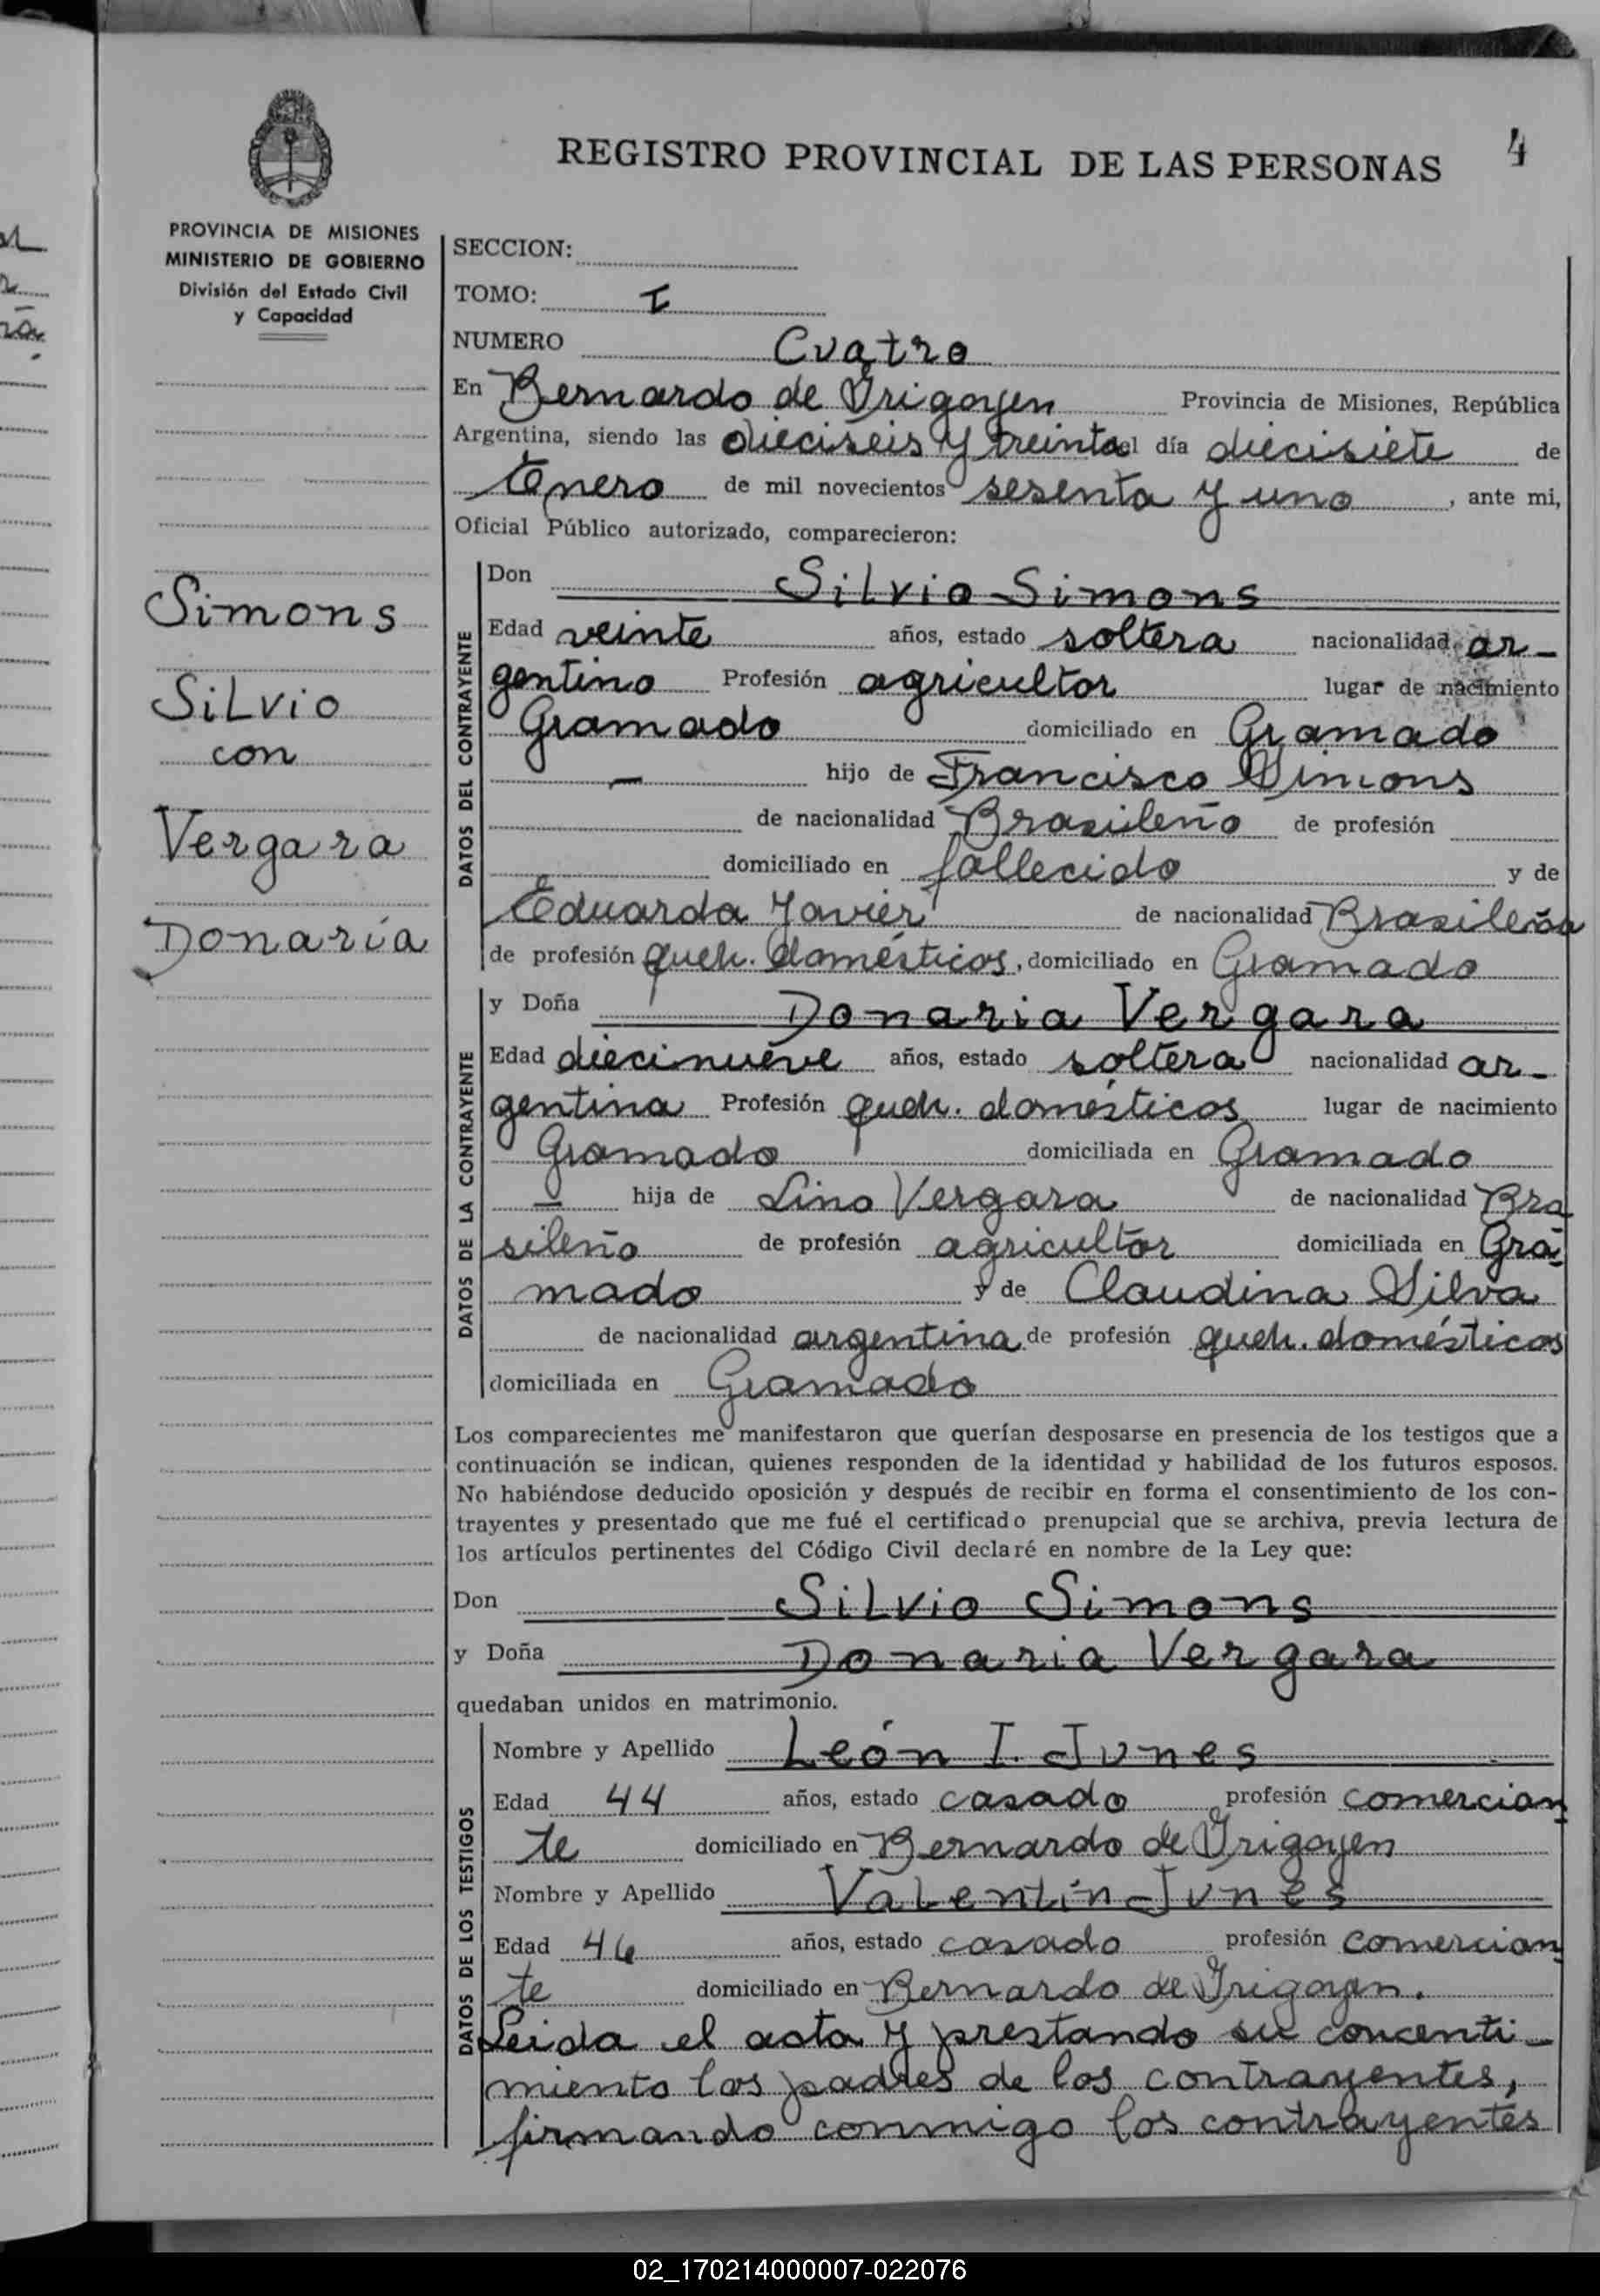 REGISTRO PROVINCIAL DE LAS PERSONAS
4
PROVINCIA DE MISIONES
MINISTERIO DE GOBIERNO
División del Estado Civil
y Capacidad
Simons
Silvio
con
Vergara
Donaria
SECCION:
TOMO: I
NUMERO Cuatro
En Bernardo de Irigoyen Provincia de Misiones, República
Argentina, siendo las dieciseis y treinta el día diecisiete de
Enero de mil novecientos sesenta y uno, ante mi,
Oficial Público autorizado, comparecieron:
DATOS DEL CONTRAYENTE
Don Silvio Simons
Edad veinte años, estado soltera nacionalidad ar-
gentino Profesión agricultor lugar de nacimiento
Gramado domiciliado en Gramado
— hijo de Francisco Simons
de nacionalidad Brasileño de profesión
domiciliado en fallecido y de
Eduarda Javier de nacionalidad Brasileña
de profesión queh. domésticos, domiciliado en Gramado
DATOS DE LA CONTRAYENTE
y Doña Donaria Vergara
Edad diecinueve años, estado soltera nacionalidad ar-
gentina Profesión queh. domésticos lugar de nacimiento
Gramado domiciliada en Gramado
— hija de Lino Vergara de nacionalidad Bra
sileño de profesión agricultor domiciliada en Gra-
mado y de Claudina Silva
de nacionalidad argentina de profesión queh. domésticos
domiciliada en Gramado
Los comparecientes me manifestaron que querían desposarse en presencia de los testigos que a
continuación se indican, quienes responden de la identidad y habilidad de los futuros esposos.
No habiéndose deducido oposición y después de recibir en forma el consentimiento de los con-
trayentes y presentado que me fué el certificado prenupcial que se archiva, previa lectura de
los artículos pertinentes del Código Civil declaré en nombre de la Ley que:
Don Silvio Simons
y Doña Donaria Vergara
quedaban unidos en matrimonio.
DATOS DE LOS TESTIGOS
Nombre y Apellido León I. Junes
Edad 44 años, estado casado profesión comercian-
te domiciliado en Bernardo de Irigoyen
Nombre y Apellido Valentín Junes
Edad 46 años, estado casado profesión comercian-
te domiciliado en Bernardo de Irigoyen.
Leida el acta y prestando su concenti-
miento los padres de los contrayentes,
firmando conmigo los contrayentes
02_170214000007-022076